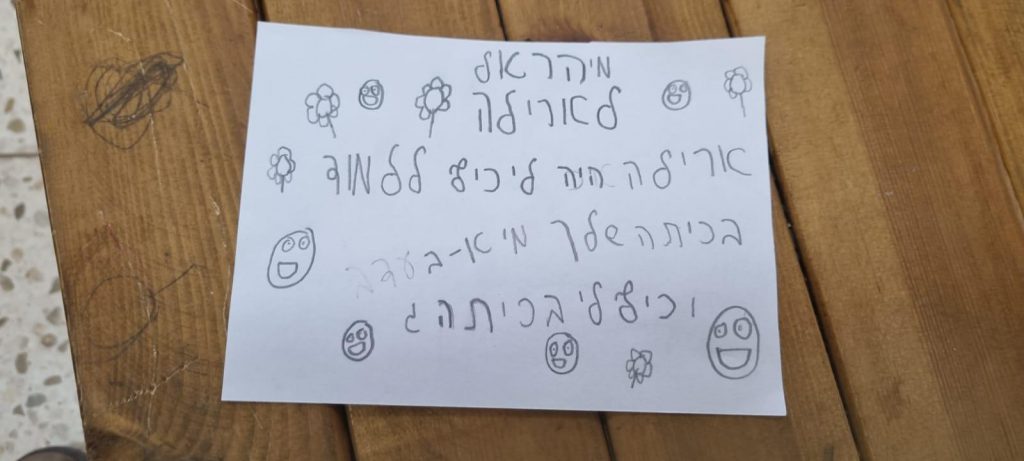 מיהראל
לאורילה
אורילה היה לי כיף ללמוד
בכיתה שלך מי א-ב
וכיף לי בכיתה ג